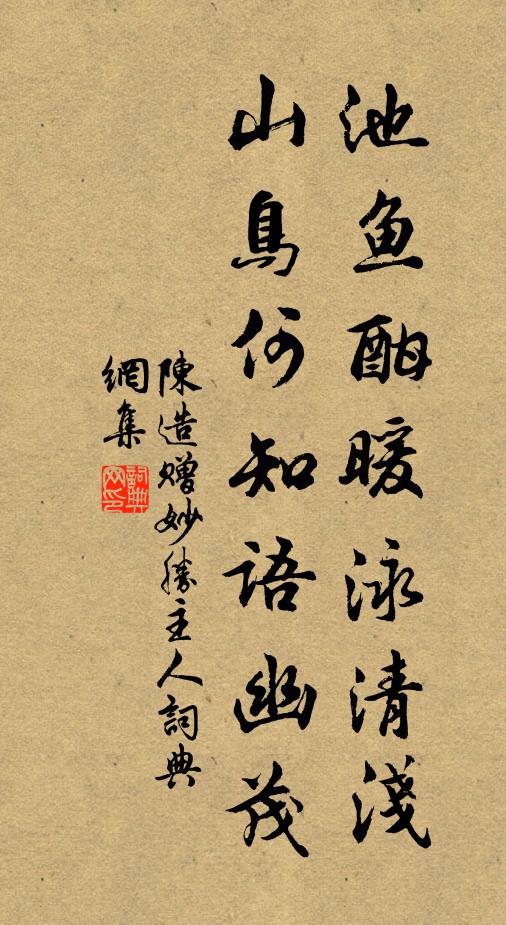 池鱼酣暖泳清淺
山鳥何知语幽茂
陳造贈妙勝主人詞典
網集
詞典
网印